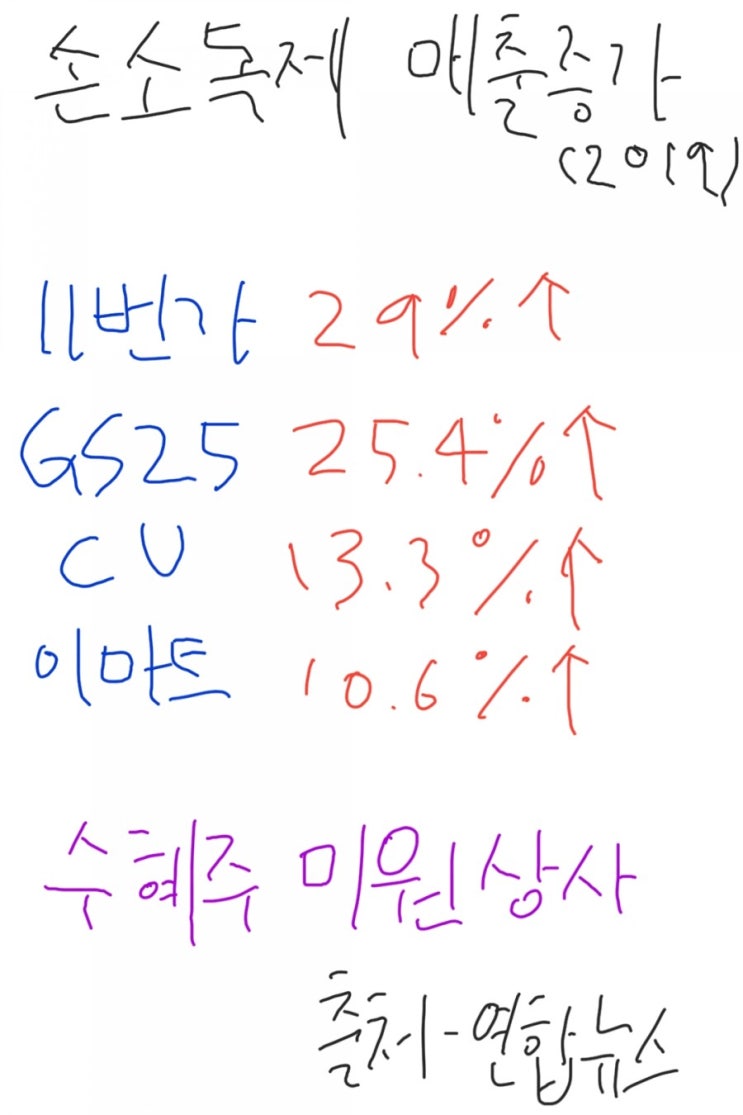 손소독제 매출증가
(2019)
11번가 29%↑
GS25 25.4%↑
CU 13.3%↑
이마트 10.6%↑
수혜주 미원상사
출처-연합뉴스